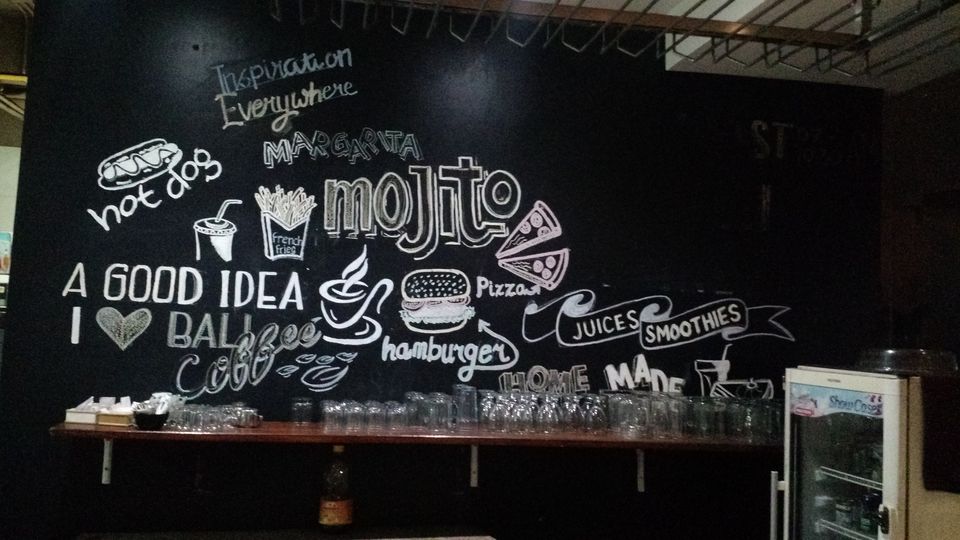 Inspiration
Everywhere
MARGARITA
hot dog
mojito
French
Fries
A GOOD IDEA
Pizzas
I BALI
Coffee
hamburger
JUICES
SMOOTHIES
HOME MADE
ST
ShowCase